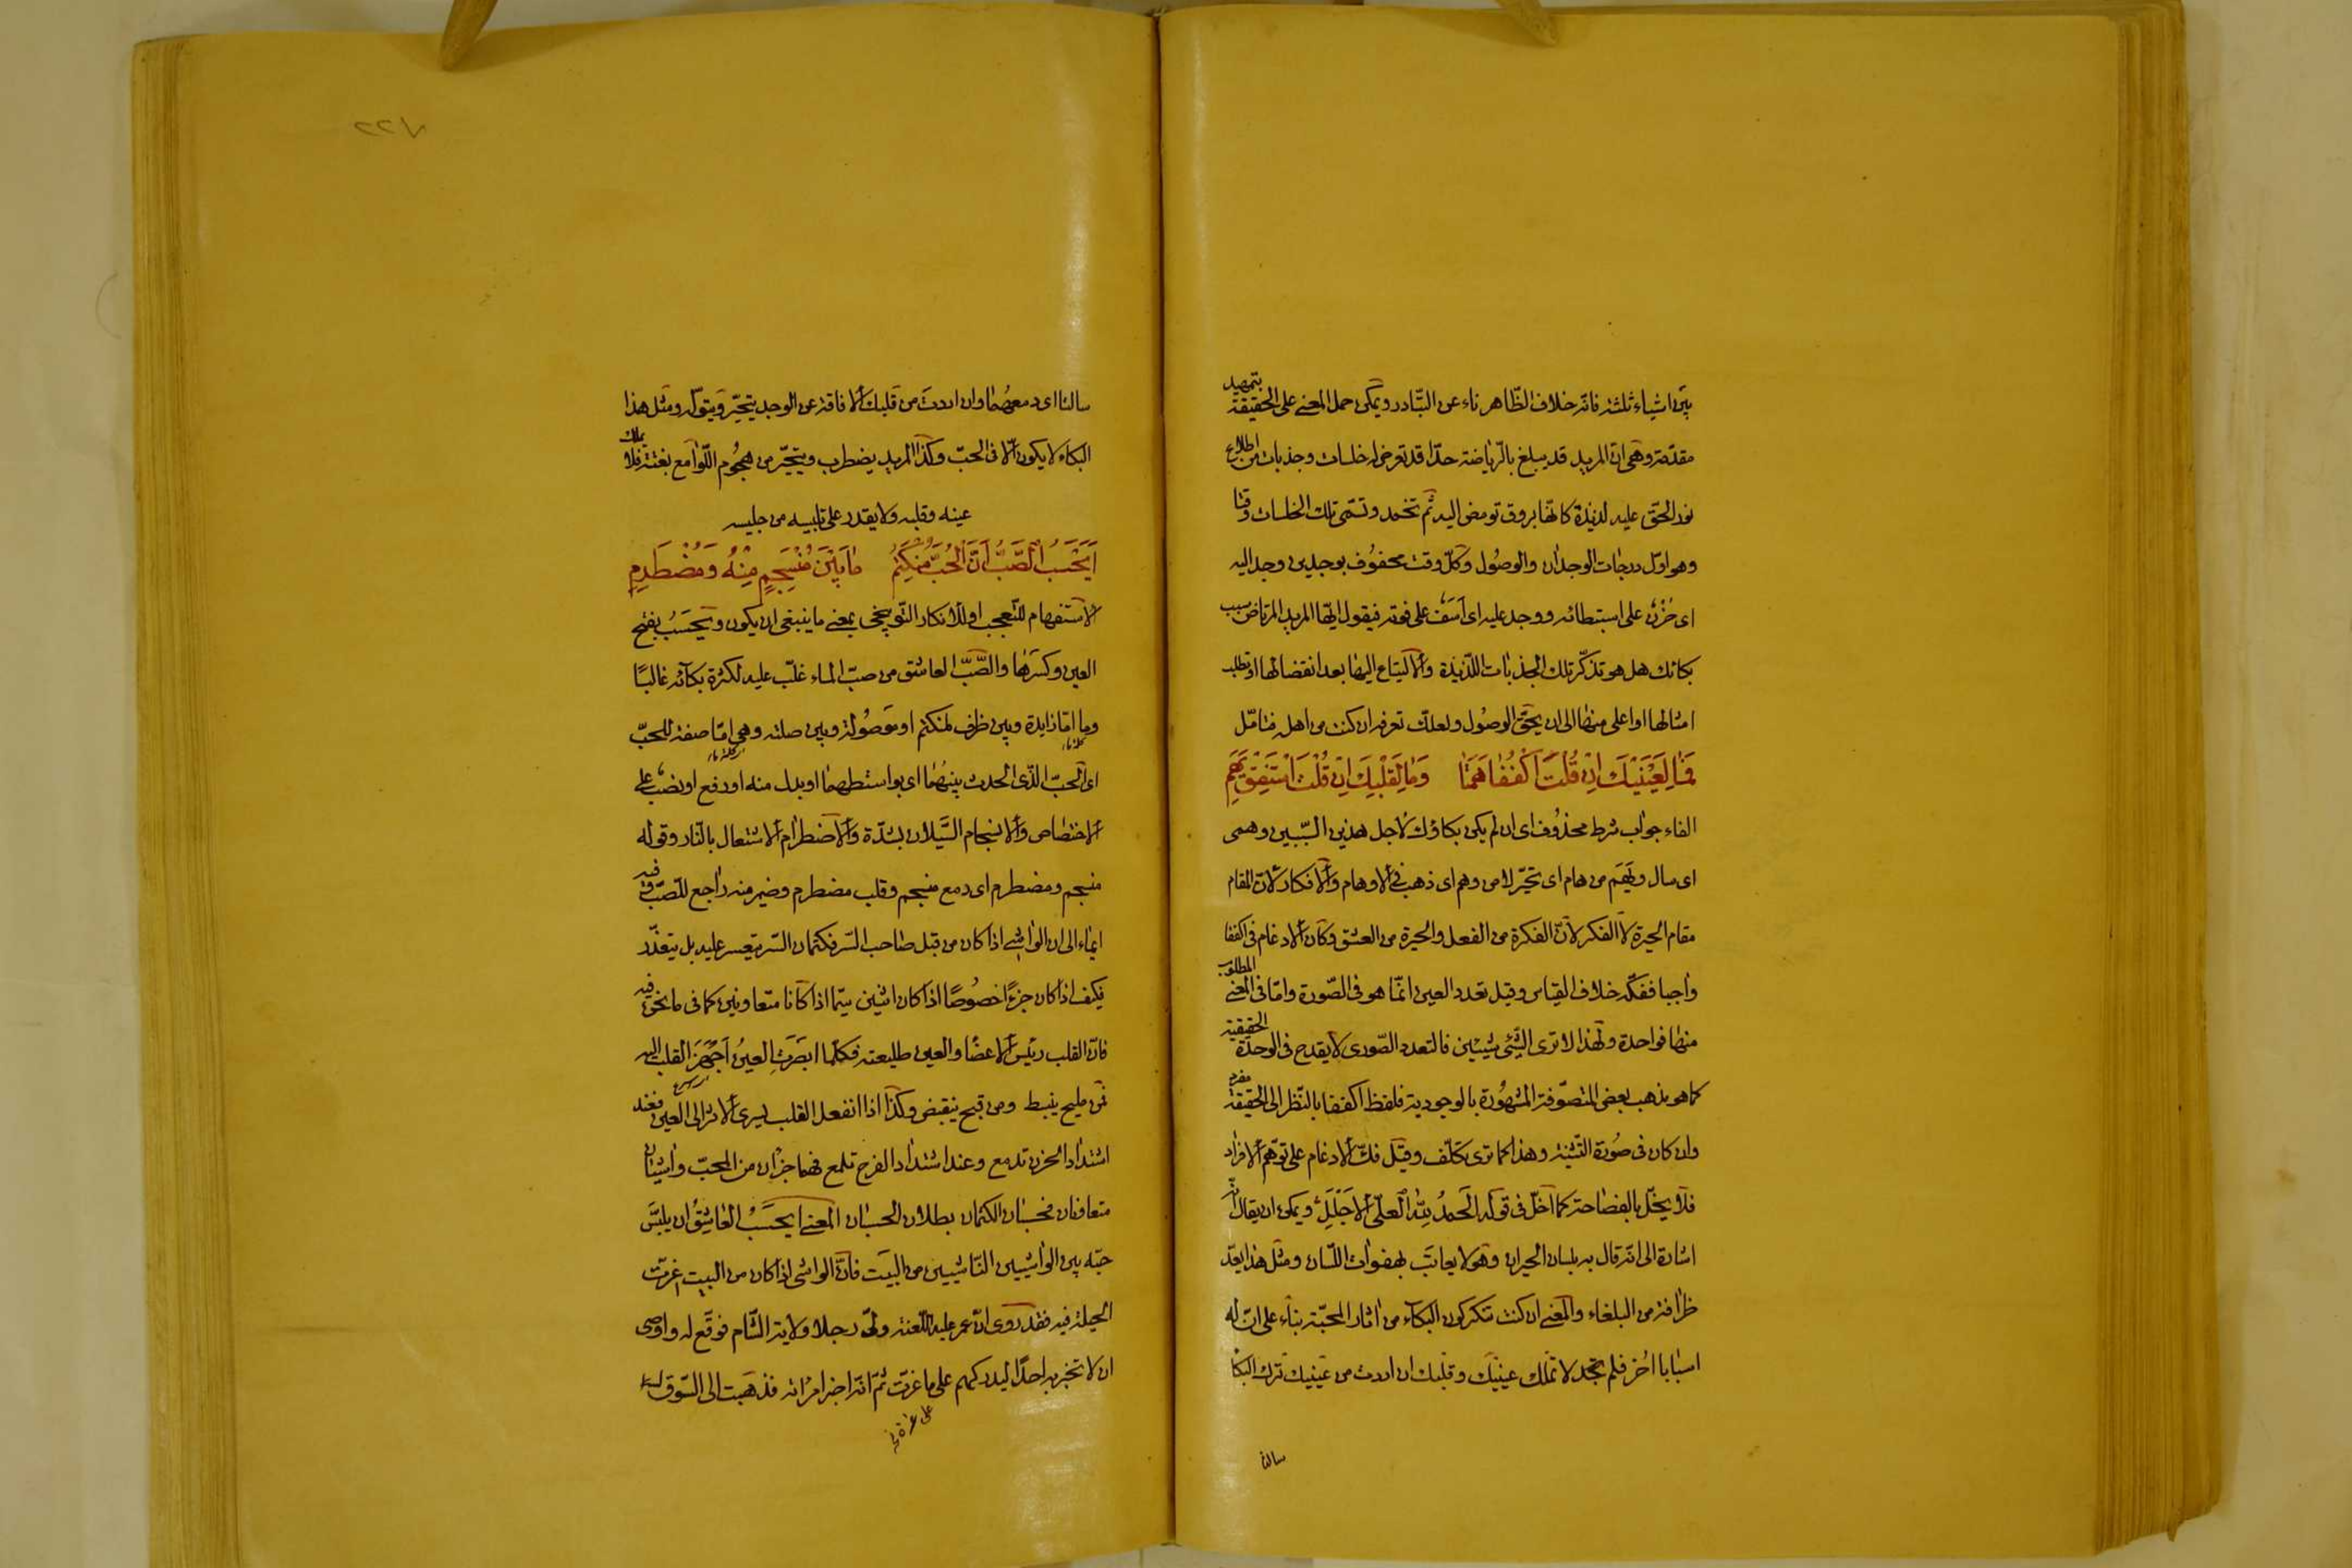 بين اشياء ثلثة فانه خلاف الظّاهر ناء عن التبّادر ويمكن حمل المعنى على الحقيقة بتمهيد
مقدّمة وهى ان المريد قد يبلغ بالرّياضة حدّا قد تعرض له خلسات وجذبات من اطلاع
نور الحقّ عليه لذيذة كانّها بروق تومض اليه ثم تخمد وتسمّى تلك الخلسات وقتا
وهو اوّل درجات الوجدان والوصُول وكلّ وقت محفوُف بوجدين وجد اليه
اى حُزْن على استبطائه ووجد عليه اى اَسَف على فوته فيقول ايّها المريد المرتاض سبب
بكائك هل هو تذكّر تلك الجذبات اللّذيذة والالتياع اليها بعد انقضائها او تطلب
امثالها او اعلى منها الى ان يحقّ الوصُول ولعلّك تعرفه ان كنت من اهله فتامّل
فَمَا لِعَيْنَيْكَ اِنْ قُلْتَ اكْفُفَا هَمَتَا وَمَا لِقَلْبِكَ اِنْ قُلْتَ اسْتَفِقْ يَهِمِ
الفاء جواب شرط محذوُف اى ان لم يكن بكاؤك لاجل هذين السّببين وهمى
اى سال ويَهِم من هام اى تحيّر لا من وهم اى ذهب فى الاوهام والافكار لانّ المقام
مقام الحيرة لا الفكر لانّ الفكرة من الفعل والحيرة من العشق وكان الادغام فى اكففا
واجبا ففكّه خلاف القياس وقيل تعدد العين انّما هو فى الصّورة وامّا فى المعنى المطلوب
منها فواحدة ولهذا لا ترى الشّئ شيئين فالتعدد الصّورى لا يقدح فى الوحدة الحقيقية
كما هو مذهب بعض المتصوّفة المشهُورة بالوجودية فلفظ اكففا بالنّظر الى الحقيقة مفرد
وان كان فى صُورة التّثنية وهذا كما ترى تكلّف وقيل فكّ الادغام على توهّم الافراد
فلا يخلّ بالفصاحة كما اخلّ فى قوله الحَمدُ لِلّهِ العلىّ الاَجْلَلِ ويمكن ان يقال انّه
اشارة الى انّه قال به بلسان الحيران وهو لا يعاتب بهفوات اللّسان ومثل هذا يعدّ
ظرافة من البلغاء والمعنى ان كنت تنكر كون البكاء من اثار المحبّة بناء على انّ له
اسبابا اُخر فلم تجد لا تملك عينيك وقلبك ان اردت من عينيك ترك البكا
سالتا
سالتا اى دمعهُما وان اردت من قلبك الافاقة عن الوجد يتحيّر ويتولّه ومثل هذا
البكاء لا يكون الّا فى الحبّ وكذا المريد يضطرب ويتحيّر من هجُوم اللّوامع بغتة فلا يملك
عينه وقلبه ولا يقدر على تلبيسه من جليسه
اَيَحْسَبُ الصَّبُّ اَنَّ الْحُبَّ مُنْكَتِمٌ مَا بَيْنَ مُنْسَجِمٍ مِنْهُ وَمُضْطَرِمِ
الاستفهام للتّعجب او للانكار التّوبيخى بمعنى ما ينبغى ان يكون ويَحْسَبُ بفتح
العين وكسرَها والصَّبّ العاشق من صبّ الماء غلّب عليه لكثرة بكآئه غالبًا
وما امّا زايدة وبين ظرف لمنكتم او موصُولة وبين صلته وهى امّا صفة للحبّ
اى الحبّ الّذى الحدث بينهُما اى بواسطتهما او بدل منه او رفع او نصب على
الاختصاص والانسجام السَّيلان بشدّة والاضطرام الاشتعال بالنّار وقوله
منسجم ومضطرم اى دمع منسجم وقلب مضطرم وضمير منه راجع للصّبّ وفيه
ايماء الى ان الواشى اذا كان من قبل صاحب السّر فكتمان السّر يتعسر عليه بل يتعذّر
فكيف اذا كان جزءً خصُوصًا اذا كان اثنين سيّما اذا كانا متعاونين كما فى ما نحن فيه
فانّ القلب رئيس الاعضا والعين طليعته فكلّما ابصَرَتِ العينُ القلب اليه
فمن مليح ينبسط ومن قبيح ينقبض وكذا اذا انفعل القلب يسرى الاثر الى العين فعند
اشتداد الحزن تدمع وعند اشتداد الفرح تلمع فهما جزءان من المحبّ واشيان
متعاونان فحسبان الكتمان بطلان الحسبان المعنى ايحسَبُ العاشِقُ ان يلبسَ
حبّه بين الواشيين النّاشيين من البَيت فانّ الواشى اذا كان من البيت
الحيلة فيه فقد روى انّ عمر عليه اللّعنة ولّى رجلا ولاية الشّام فوقّع له واوصى
ان لا تخبر به احدًا ثمّ انّه اخبر امرُاته فذهبت الى السّوق